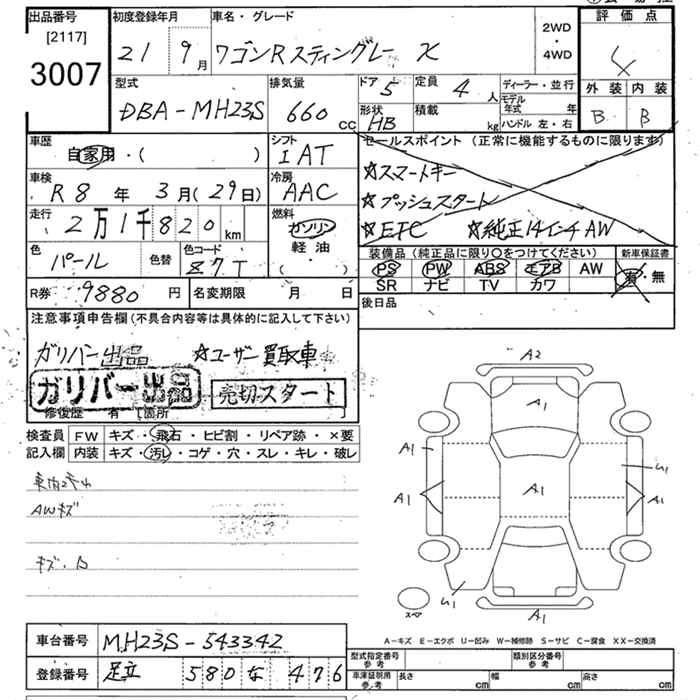 出品番号
[2117]
3007
初度登録年月
21 9月
車名・グレード
ワゴンR スティングレー X
2WD
・
4WD
評価点
4
外装 内装
B B
型式
DBA-MH23S
排気量
660 cc
ドア 5
定員 4 人
形状 HB
積載 kg
ディーラー・並行
モデル年式 年
ハンドル 左・右
車歴
自家用・( )
シフト
IAT
車検
R8年3月(29日)
冷房
AAC
走行
2万1千820km
燃料
ガソリン
軽油
( )
色
パール
色替
色コード
Z7T
セールスポイント (正常に機能するものに限ります)
☆スマートキー
☆プッシュスタート
☆ETC ☆純正14インチAW
装備品(純正品に限り○をつけてください)
PS PW ABS エアB AW
SR ナビ TV カワ
新車保証書
有・無
R券 9880円
名変期限 月 日
後日品
注意事項申告欄(不具合内容等は具体的に記入して下さい)
ガリバー出品 ☆ユーザー買取車
ガリバー出品
売切スタート
修復歴 有 [箇所 ]
検査員記入欄
FW キズ・飛石・ヒビ割・リペア跡・×要
内装 キズ・汚レ・コゲ・穴・スレ・キレ・破レ
AWキズ
A2
A1
A1
A1
A1
A1
A1
U1
U1
スペ
A-キズ E-エクボ U-凹み W-補修跡 S-サビ C-腐食 XX-交換済
車台番号 MH23S-543342
登録番号 足立 580 な 476
型式指定番号
参考
類別区分番号
参考
車庫証明用
参考
長さ cm
幅 cm
高さ cm